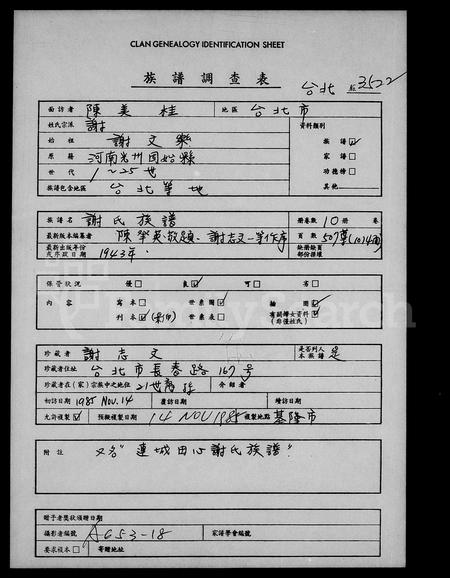 CLAN GENEALOGY IDENTIFICATION SHEET
族譜調查表
台北 3522
面訪者 陳美桂 地區 台北市
姓氏宗派 謝 資料類別
始祖 謝文樂 族譜☑
原籍 河南光州固始縣 家譜□
世代 1~25世 功德榜□
族譜包含地區 台北等地 其他
族譜名 謝氏族譜 冊卷數 10冊 卷
最新版本編著者 謝志文 等作序 頁數 507葉(1014面)
最新出版年份或序跋日期 1943年. 缺冊缺頁部份摘環
保管狀況 優□ 良☑ 可□ 劣□
內容 寫本□ 世系圖☑ 繪圖☑
刊本☑ 世系表□ 有關婦女資料☑ (非僅姓氏)
珍藏者 謝志文 是否列入本族譜 是
珍藏者住址 台北市長春路167号
珍藏者在(家)宗族中之地位 21世裔孫 介紹者
初訪日期 1985 NOV.14 覆訪日期 續訪日期
允許複製☑ 預擬複製日期 14 NOV 1985 複製地點 基隆市
附註 又名"蓮城田心謝氏族譜"
贈予者獎狀頒贈日期
攝影者編號 A653-18 家譜學會編號
要求複本□ 寄贈地址
FamilySearch